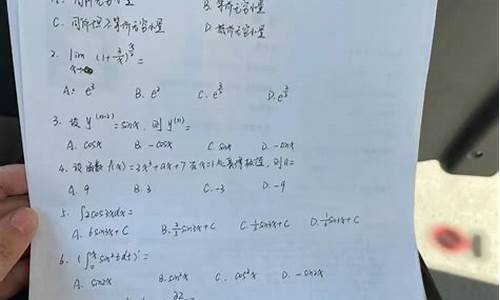 A. 同阶无穷小量 B. 等阶无穷小量
C. 同阶但不等阶无穷小量 D. 高阶无穷小量
2. lim (1+2/x) =
A. e³ B. e² C. e D. e
3. 设 y⁽ⁿ⁻²⁾ = sinx, 则 y⁽ⁿ⁾ =
A. cosx B. -cosx C. sinx D. -sinx
4. 设函数 f(x)=2x³+ax+7在x=1处取得极值, 则a=
A. 9 B. 3 C. -3 D. -9
5. ∫2cos3xdx=
A. 6sin3x+C B. 2/3 sin3x+C C. 1/3 sin3x+C D. 1/6 sin3x+C
6. (∫₀ˣ sin²tdt)' =
A. sin2x B. sin²x C. cos²x D. -sin2x